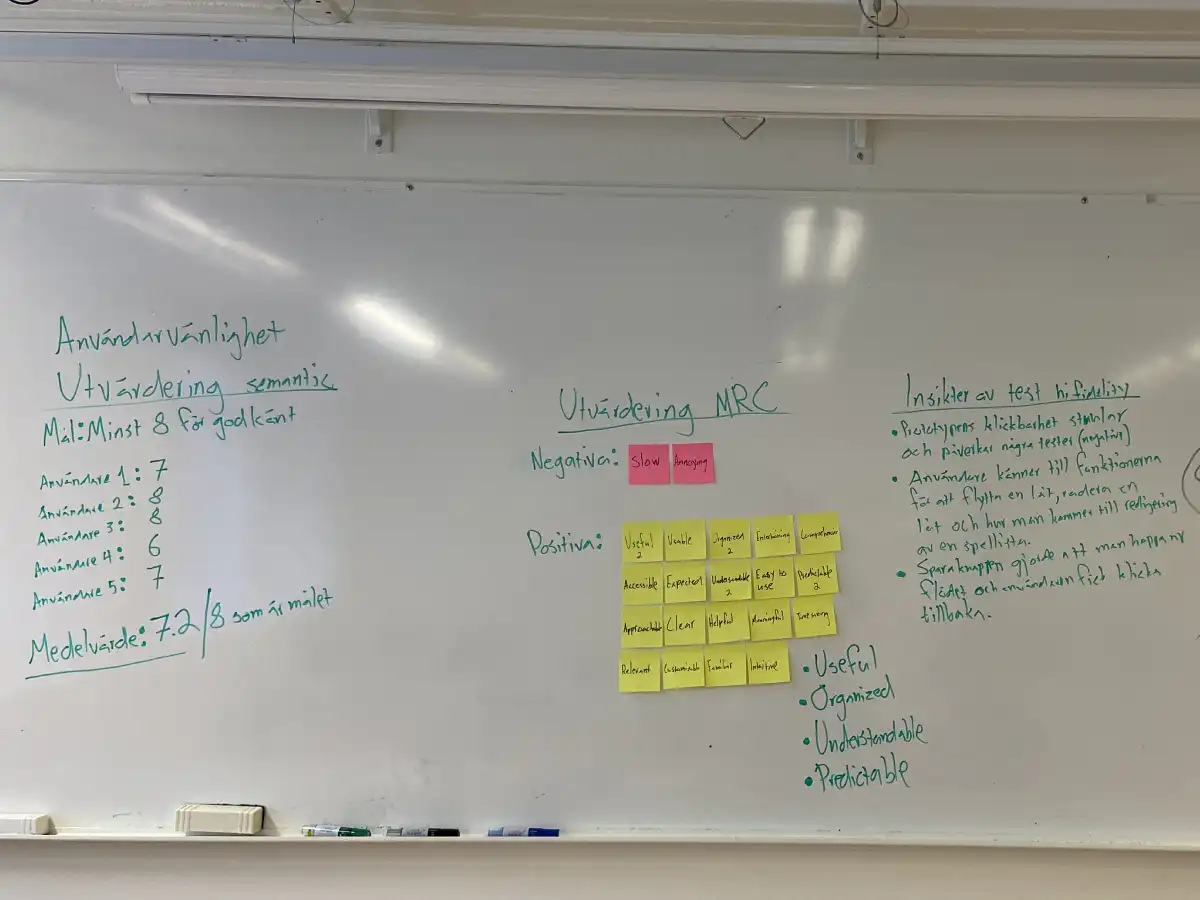 Användarvänlighet
Utvärdering semantic
Mål: Minst 8 för godkänt
Användare 1: 7
Användare 2: 8
Användare 3: 8
Användare 4: 6
Användare 5: 7
Medelvärde: 7.2/8 som är målet
Utvärdering MRC
Negativa:
Slow
Annoying
Positiva:
Useful 2
Usable
Organized 2
Entertaining
Accessible
Expected
Understandable 2
Easy to use
Predictable 2
Approachable
Clear
Helpful
Meaningful
Time saving
Relevant
Customizable
Familiar
Intuitive
• Useful
• Organized
• Understandable
• Predictable
Insikter av test hifidelity
• Prototypens klickbarhet
och påverkar några tester (negativt)
• Användare känner till funktionerna
för att flytta en låt, radera en
låt och hur man kommer till redigering
av en spellista.
• Sparaknappen gjorde att man hoppa ur
flödet och användaren fick klicka
tillbaka.